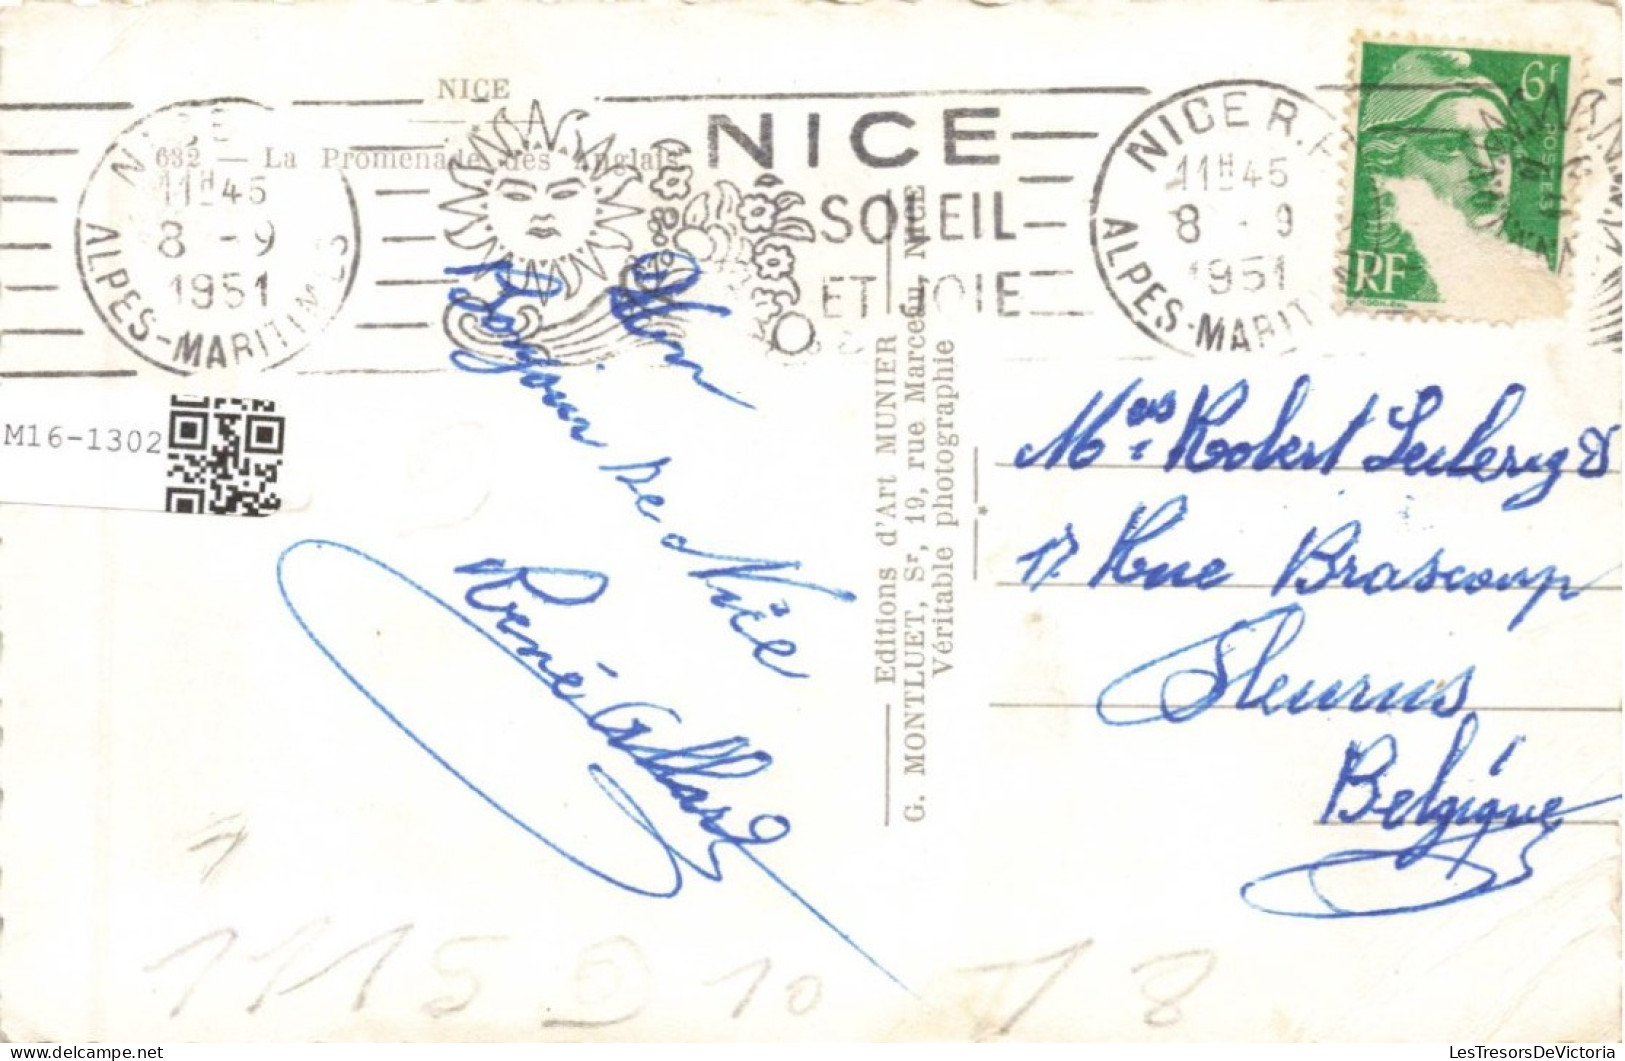 NICE
632 — La Promenade des Anglais
NICE
11H45
8 - 9
1951
ALPES-MARITIMES
NICE
SOLEIL
ET JOIE
NICE R.P.
11H45
8 - 9
1951
ALPES-MARIT
6F
POSTES
RF
M16-1302
Bonjour de Nice
René Allard
Editions d'Art MUNIER
G. MONTLUET, Sr, 19, rue Marceau, NICE
Véritable photographie
Robert Leclercq
17 Rue Brascoup
Fleurus
Belgique
1115 10 18
LesTresorsDeVictoria